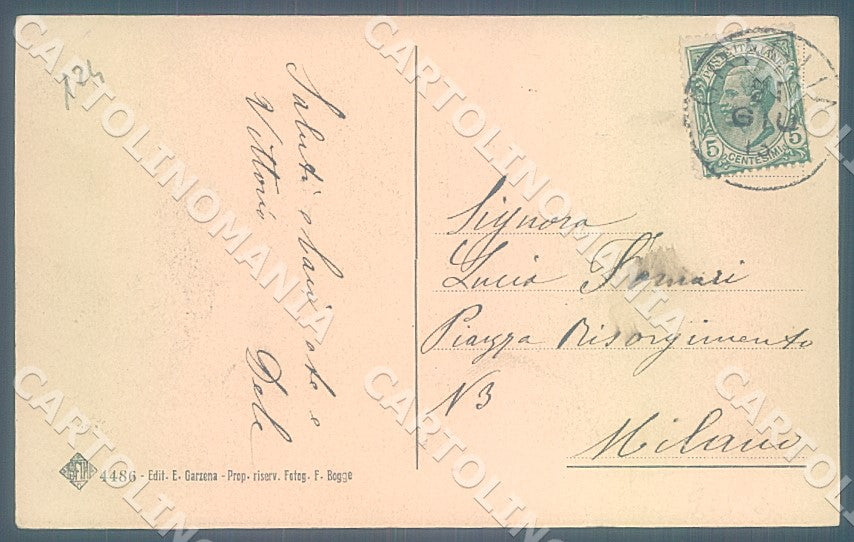 Saluti
Vittorio Dele
POSTE ITALIANE
5 CENTESIMI 5
Signora
Lucia Fornari
Piazza Risorgimento
N 3
Milano
4486 - Edit. E. Garzena - Prop. riserv. Fotog. F. Bogge
CARTOLINOMANIA
CARTOLINOMANIA
CARTOLINOMANIA
CARTOLINOMANIA
CARTOLINOMANIA